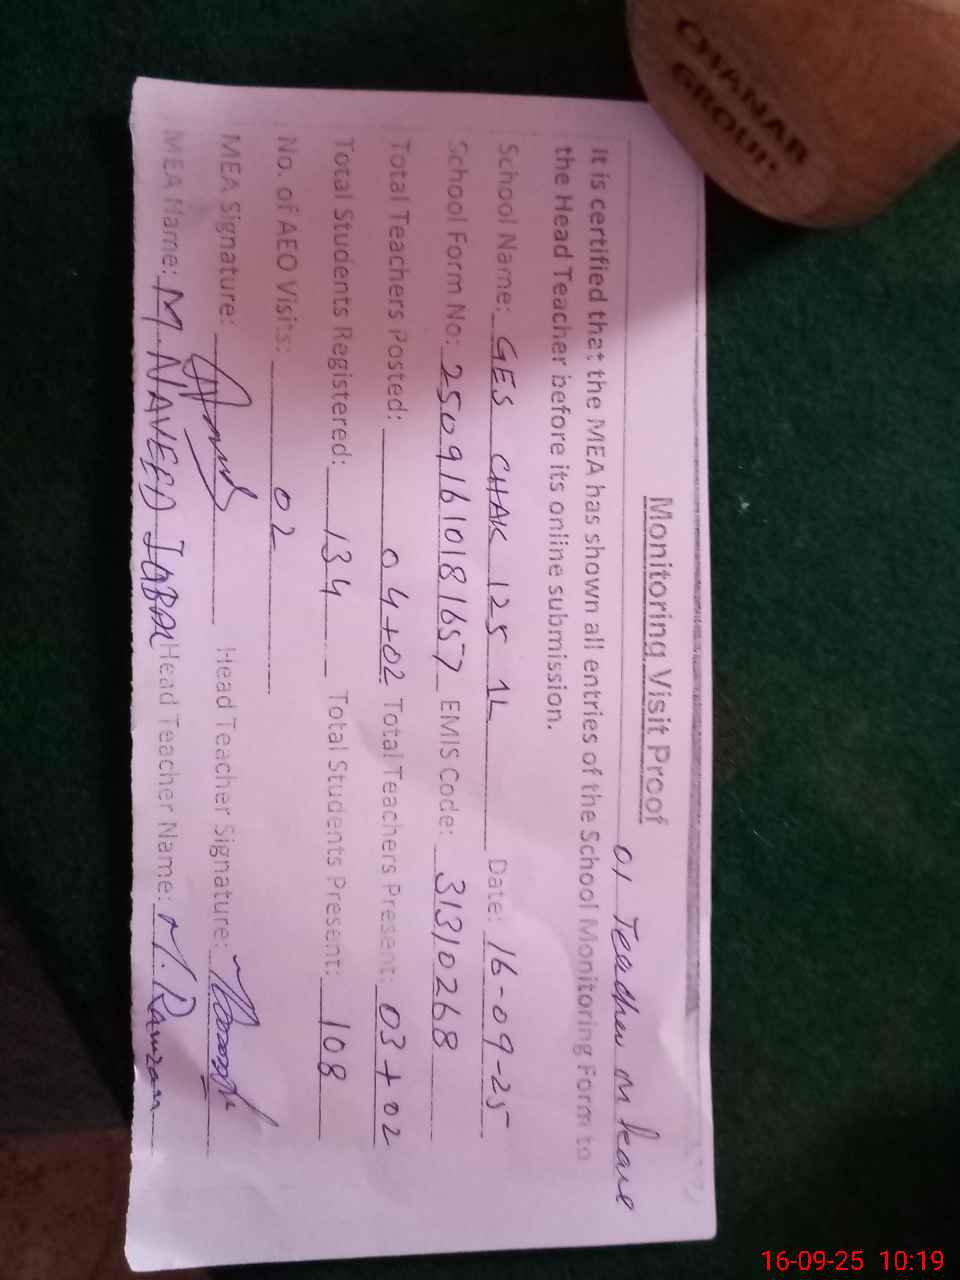 CHANAR
GROUP
Monitoring Visit Proof
01 Teacher on leave
It is certified that the MEA has shown all entries of the School Monitoring Form to
the Head Teacher before its online submission.
School Name: GES CHAK 125 1L Date: 16-09-25
School Form No: 25091610181657 EMIS Code: 31310268
Total Teachers Posted: 04+02 Total Teachers Present: 03+02
Total Students Registered: 134 Total Students Present: 108
No. of AEO Visits: 02
MEA Signature: Head Teacher Signature:
MEA Name: M. NAVEED IQBAL Head Teacher Name: M. Ramzan
16-09-25 10:19